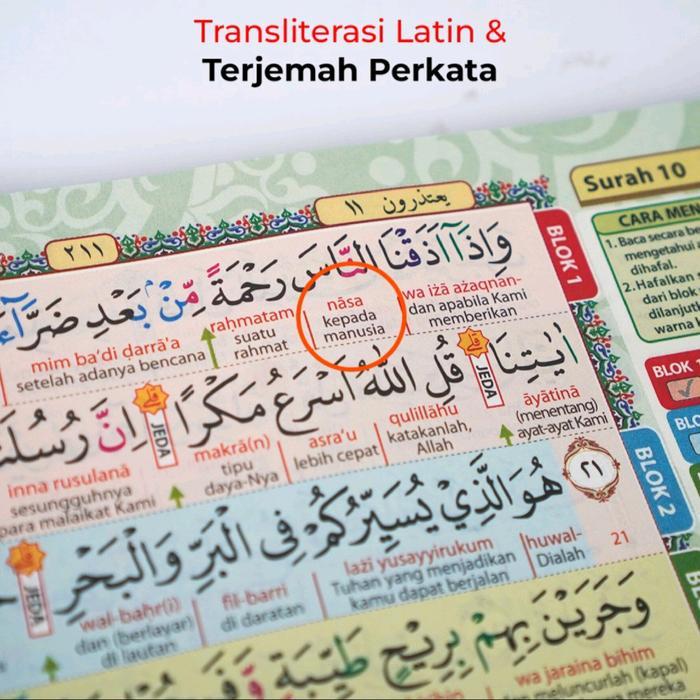 Transliterasi Latin &
Terjemah Perkata
Surah 10
يعتذرون ١١
٢١١
CARA MEN
1. Baca secara be
mengetahu
dihafal.
2. Hafalkan
dari blok
dilanjut
warna
BLOK 1
وَاِذَآ اَذَقْنَا النَّاسَ رَحْمَةً مِّنْۢ بَعْدِ ضَرَّاۤءَ
wa iżā ażaqnan- nāsa raḥmatam mim ba'di ḍarrā'a
dan apabila Kami memberikan kepada manusia suatu rahmat setelah adanya bencana
اٰيَاتِنَا قُلِ اللّٰهُ اَسْرَعُ مَكْرًا اِنَّ رُسُلَنَا
JEDA
JEDA
āyātinā qulillāhu asra'u makrā(n) inna rusulanā
(menentang) ayat-ayat Kami katakanlah, Allah lebih cepat tipu daya-Nya sesungguhnya para malaikat Kami
BLOK 1
BLOK 2
٢١
هُوَ الَّذِيْ يُسَيِّرُكُمْ فِى الْبَرِّ وَالْبَحْرِ
JEDA
21
huwal- lażī yusayyirukum fil-barri wal-baḥr(i)
Dialah Tuhan yang menjadikan kamu dapat berjalan di daratan dan (berlayar) di lautan
وَجَرَيْنَ بِهِمْ بِرِيْحٍ طَيِّبَةٍ
wa jaraina bihim
meluncurlah (kapal)
mereka